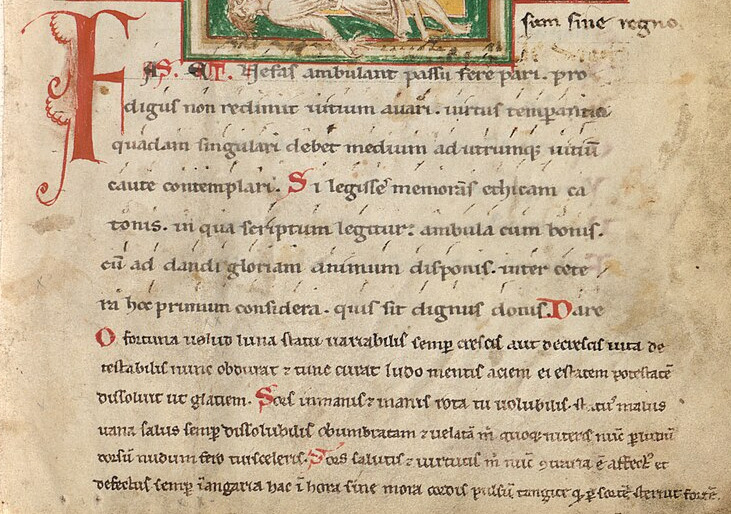 sum sine regno.
FAS. ET. Nefas ambulant passu fere pari. pro
digus non redimit uitium auari. uirtus temperantia
quadam singulari debet medium ad utrumq; uitiū
caute contemplari. Si legisse memoras ethicam ca
tonis. in qua scriptum legitur: ambula cum bonis.
cū ad dandi gloriam animum disponis. inter cete
ra hoc primum considera. quis sit dignus donis. Dare
O fortuna uelud luna statu uariabilis semp crescis aut decrescis uita de
testabilis nunc obdurat & tunc curat ludo mentis aciem egestatem potestatē
dissoluit ut glatiem. Sors immanis & inanis rota tu uolubilis. statu' malus
uana salus semp dissolubilis obumbratam & uelatā m̄ quoq; niteris nūc p ludū
dorsū nudum fero tui sceleris. Sors salutis & uirtutis m̄ nūc 9traria ē affect' et
defectus semp ī angaria hac ī hora sine mora cordis pulsū tangite q, p sortē sternit fortē.